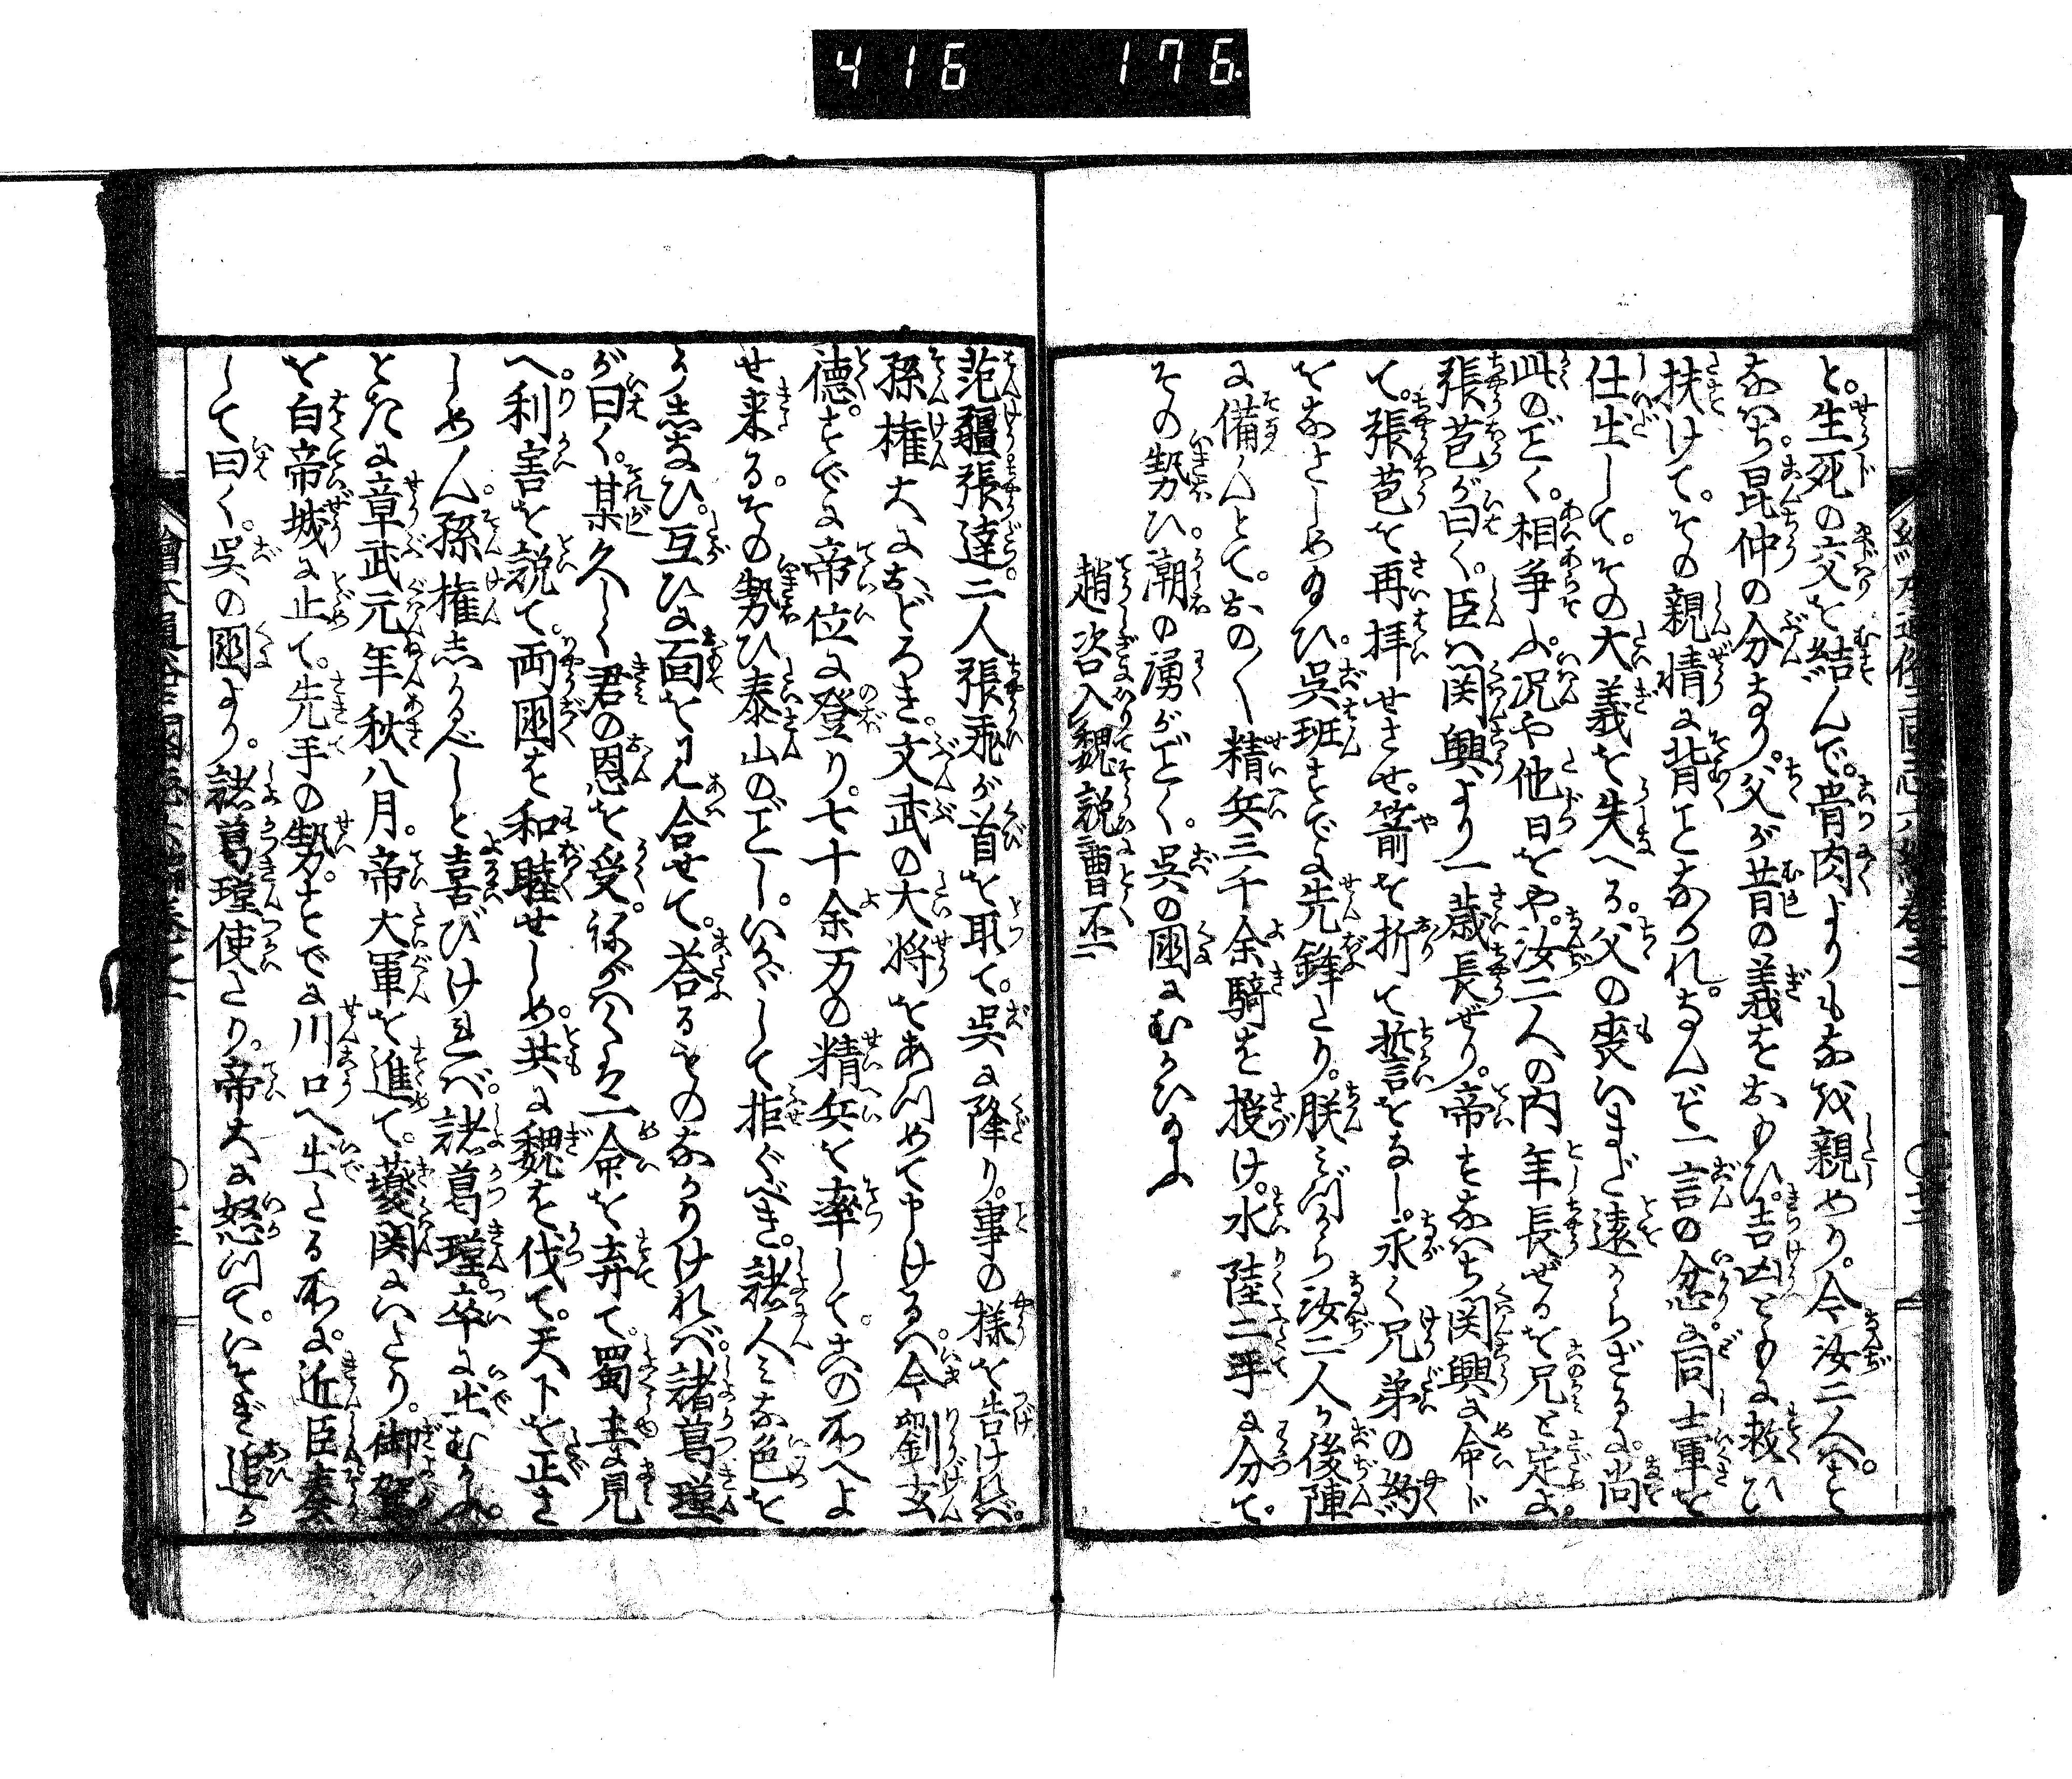 416 176
と。生死の交を結んで。骨肉よりもなほ親めり。今汝二人ハ。まこと
なハち昆仲の分なり。父が昔の義をおもひ。吉凶ともに救ひ
扶けて。その親情に背ことなかれ。なんぞ一言の忿に同士軍を
仕出して。その大義を失へる。父の喪いまだ遠からざるに。尚
此のごとく。相争ふ。况や他日をや。汝二人の内年長ぜるを兄と定よ。
張苞が曰く。臣ハ関興より一歳長ぜり。帝すなハち関興に命ド
て。張苞を再拝せさせ。箭を折て誓をなし。永く兄弟の約
をなさしめ給ひ。呉班すでに先鋒たり。朕ミづから汝二人が後陣
に備んとて。おの〱精兵三千余騎を授け。水陸二手に分て。
その勢ひ。潮の湧がごとく。呉の國にむかひ給ふ
趙咨入魏説曹丕
范彊張達二人張飛が首を取て。呉に降り。事の様を告ければ。
孫権大におどろき。文武の大将をあつめて申けるハ。今劉玄
徳。すでに帝位に登り。七十余万の精兵を率して。この所へよ
せ来る。その勢ひ泰山のごとし。いかゞして拒ぐべき。諸人ミな色を
うしなひ。互ひに面を見合せて。荅るものなかりければ。諸葛瑾
が曰く。某久しく君の恩を受。ねがハくハ一命を弃て。蜀主に見
へ。利害を説て。両國を和睦せしめ。共に魏を伐て。天下を正さ
しめん。孫権しかるべしと喜びければ。諸葛瑾卒に出むかふ。
ときに章武元年秋八月。帝大軍を進て。夔関にいたり。御駕
を白帝城に止て。先手の勢。すでに川口へ出たる所に。近臣奏
して曰く。呉の國より。諸葛瑾使たり。帝大に怒つて。いそぎ追か